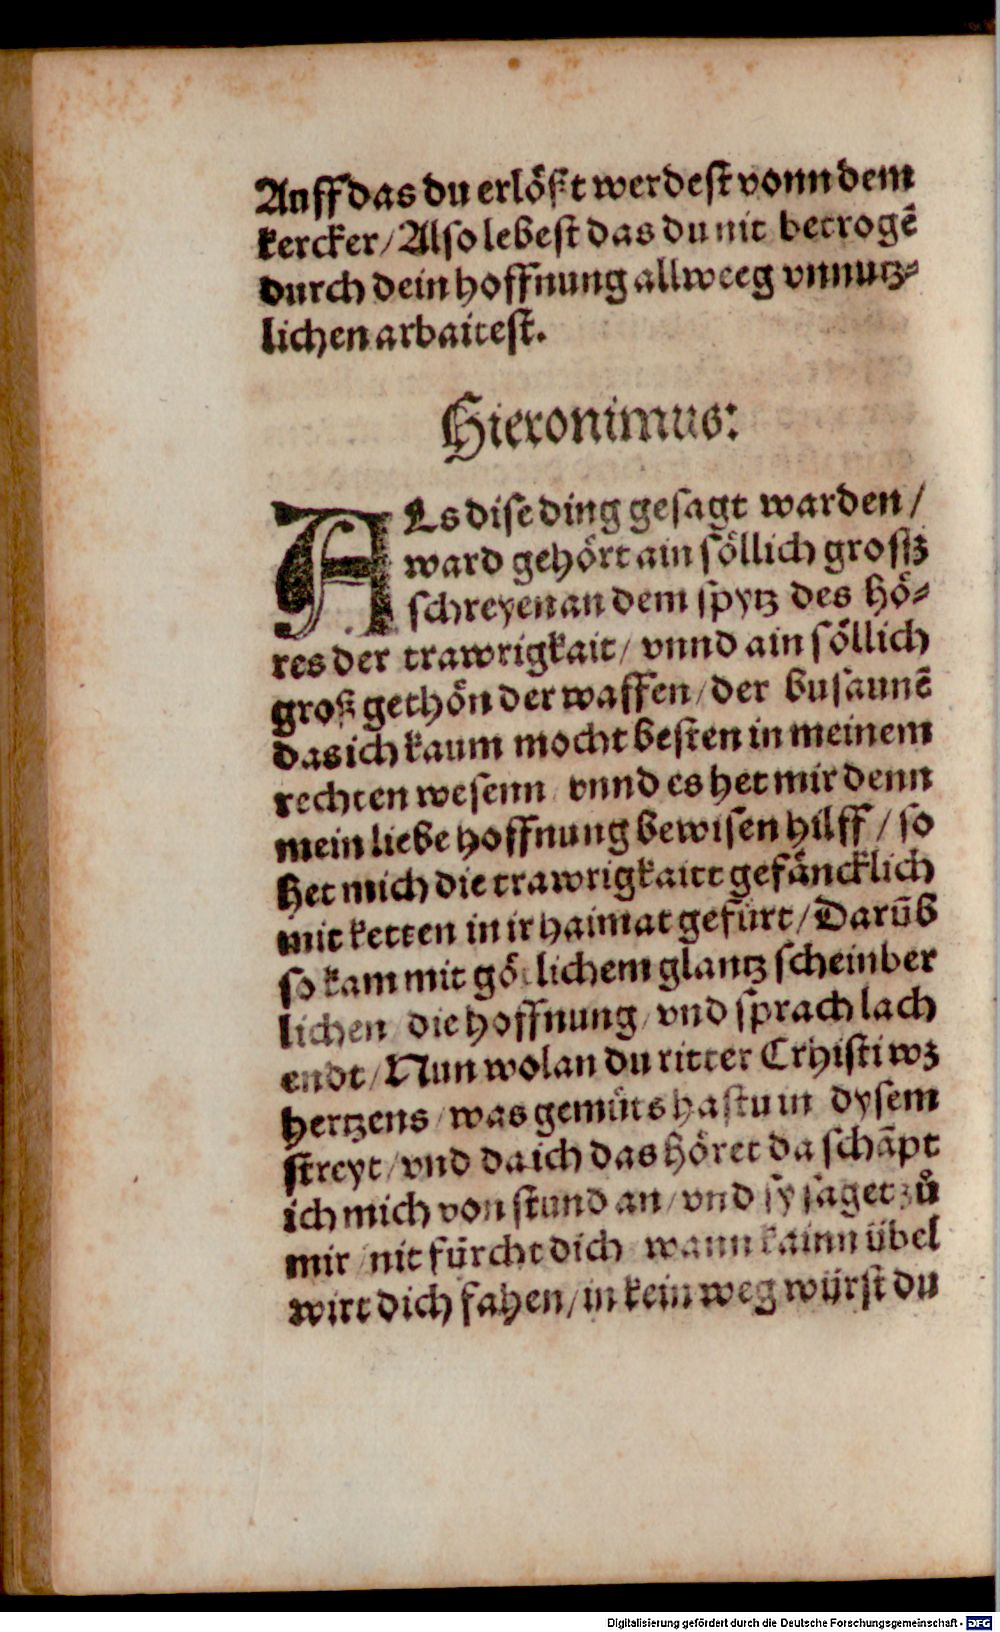 Auff das du erlößt werdest vonn dem
kercker/ Also lebest das du nit betrogē
durch dein hoffnung allweeg vnnutz⸗
lichen arbaitest.
Hieronimus:
ALs dise ding gesagt warden/
ward gehört ain söllich grosßz
schreyen an dem spytz des hö⸗
res der trawrigkait/ vnnd ain söllich
groß gethön der waffen/ der busaunē
das ich kaum mocht besten in meinem
rechten wesenn/ vnnd es het mir denn
mein liebe hoffnung bewisen hilff/ so
het mich die trawrigkaitt gefäncklich
mit ketten in ir haimat gefürt/ Darūb
so kam mit götlichem glantz scheinber
lichen/ die hoffnung/ vnd sprach lach
endt/ Nun wolan du ritter Crhisti wz
hertzens/ was gemüts hastu in dysem
streyt/ vnd da ich das höret da schāpt
ich mich von stund an/ vnd sy saget zů
mir/ nit fürcht dich/ wann kainn übel
wirt dich fahen/ in kein weg würst du
Digitalisierung gefördert durch die Deutsche Forschungsgemeinschaft - DFG